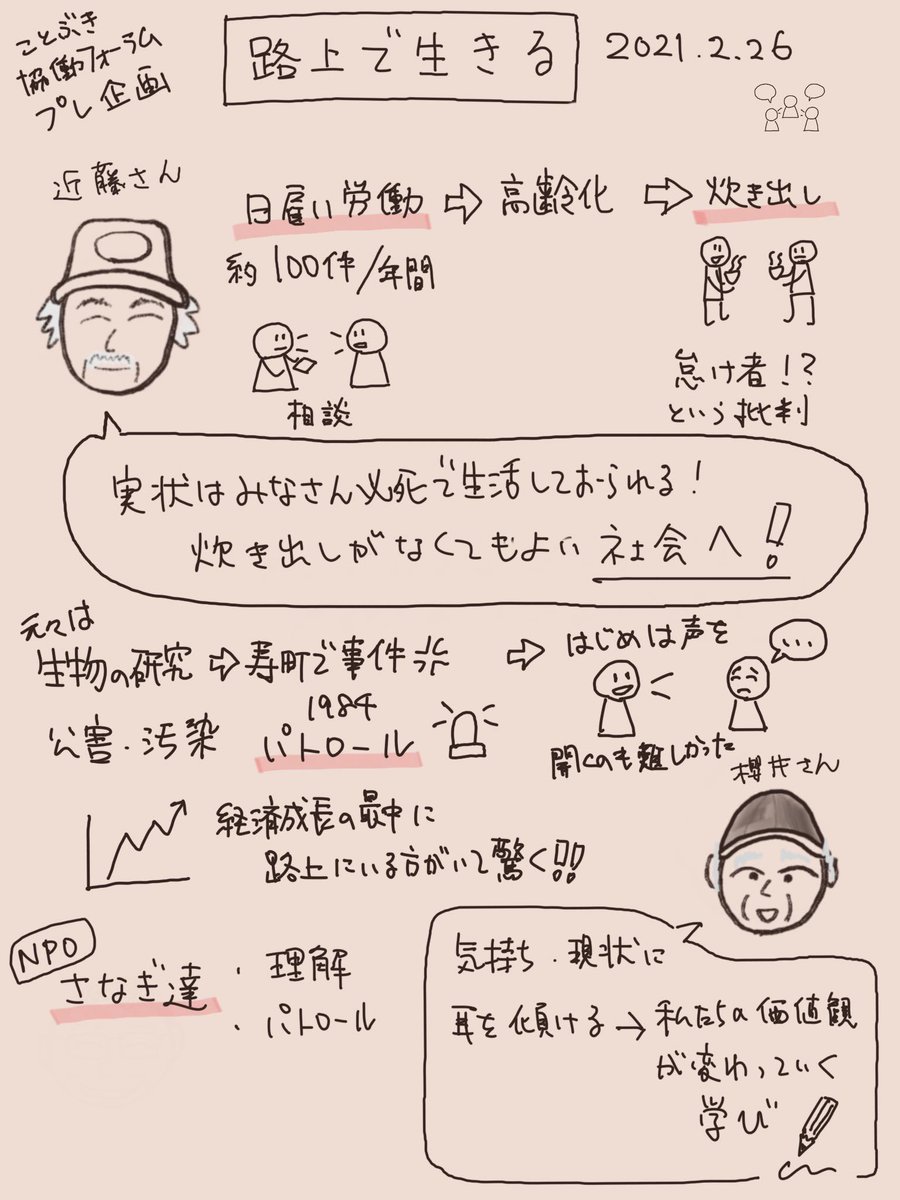 ことぶき
協働フォーラム
プレ企画
路上で生きる
2021.2.26
近藤さん
日雇い労働 ⇨ 高齢化 ⇨ 炊き出し
約100件/年間
相談
怠け者!?
という批判
実状はみなさん必死で生活しておられる!
炊き出しがなくてもよい社会へ!
元々は
生物の研究 ⇨ 寿町で事件 ⇨ はじめは声を
公害・汚染
1984
パトロール
聞くのも難しかった
櫻井さん
経済成長の最中に
路上にいる方がいて驚く!!
NPO
さなぎ達
・理解
・パトロール
気持ち・現状に
耳を傾ける→私たちの価値観
が変わっていく
学び
...